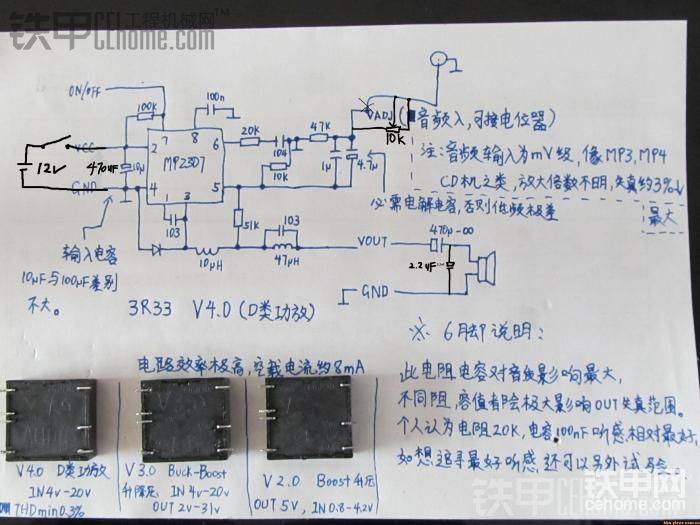 铁甲 工程机械网
CEhome.com
ON/OFF
100K
100n
VCC
12V
470uF
10μ
GND
2
7
8
6
MP2307
4
1
3
5
20K
104
10K
47K
1μ
4.7μ
VADJ
10K
(音频入,可接电位器)
注:音频输入为mV级,像MP3,MP4
CD机之类,放大倍数不明,失真约3%
最大
必需电解电容,否则低频极差
103
51K
103
10μH
47μH
VOUT
470μ-∞
2.2uF
GND
输入电容
10μF与100μF差别
不大。
3R33 V4.0(D类功放)
※ 6脚说明:
电路效率极高,空载电流约8mA
此电阻电容对音质影响最大,
不同阻,容值都会极大影响OUT失真范围。
个人认为电阻20K,电容100nF听感相对最好,
如想追寻最好听感,还可以另外试验。
V4.0 D类功放
IN 4V-20V
THD min 0.3%
V3.0 Buck-Boost
升降压 IN 4V-20V
OUT 2V-31V
V2.0 Boost升压
OUT 5V, IN 0.8-4.2V
铁甲论坛
CEhome.com